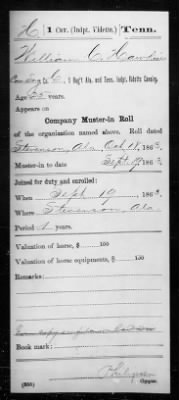 H 1 Cav. (Indpt. Vidette.) Tenn.
William C.
Co. C, 1 Reg't Ala. and Tenn. Indpt. Vidette Cavalry.
Age years.
Appears on
Company Muster-in Roll
of the organization named above. Roll dated
Stevenson, Ala. Oct 18, 1863.
Muster-in to date Sept. 19, 1863.
Joined for duty and enrolled:
When Sept. 19, 1863.
Where Stevenson, Ala.
Period 1 years.
Valuation of horse, $ 100
Valuation of horse equipments, $ 100
Remarks:
Book mark:
Copyist.